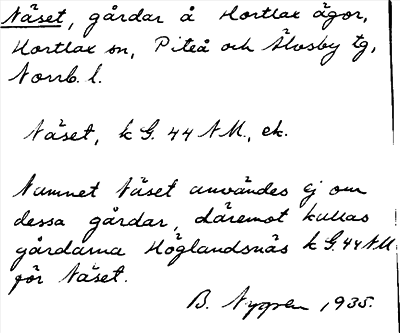 Näset, gårdar å Hortlax ägor,
Hortlax sn, Piteå och Älvsby tg,
Norrb. l.
Näset, k G. 44 NM., ek.
Namnet Näset användes ej om
dessa gårdar, däremot kallas
gårdarna Höglandsnäs k G. 44 NM.
för Näset.
B. Nygren 1935.